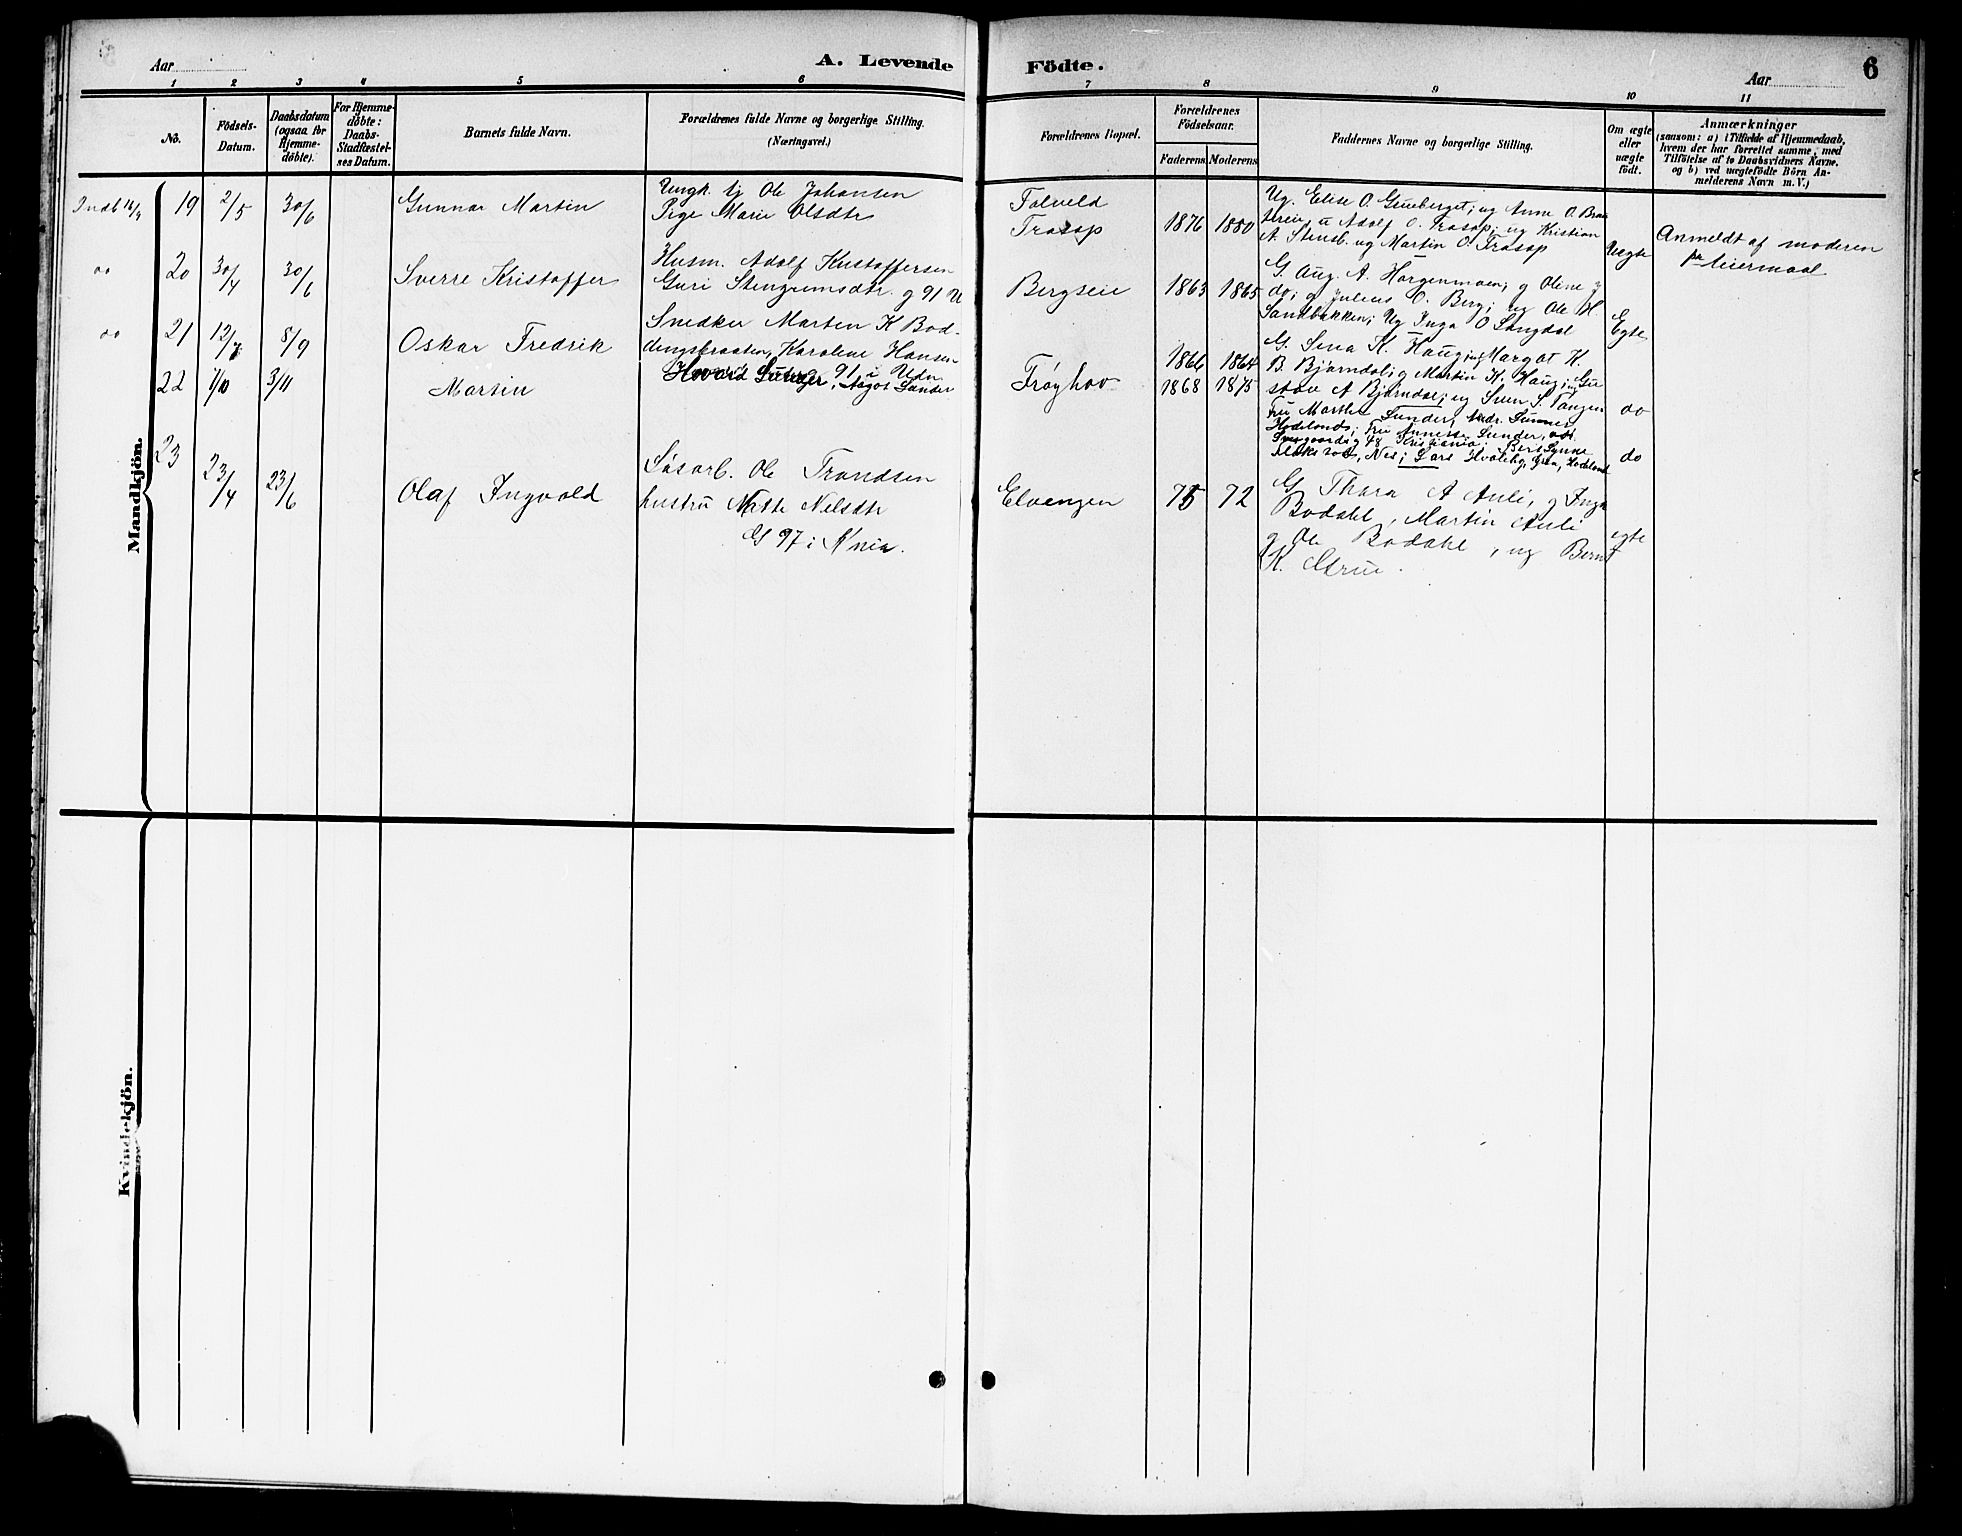 Aar
A. Levende
Födte.
Aar
6
1 2 3 4 5 6 7 8 9 10 11
No.
Födsels-Datum.
Daabsdatum (ogsaa for Hjemme-döbte).
For Hjemme-döbte: Daabs-Stadfæstel-ses Datum.
Barnets fulde Navn.
Forældrenes fulde Navne og borgerlige Stilling.
(Næringsvei.)
Forældrenes Bopæl.
Forældrenes Födselsaar.
Faderens. Moderens.
Faddernes Navne og borgerlige Stilling.
Om ægte eller uægte födt.
Anmærkninger
(saasom: a) i Tilfælde af Hjemmedaab,
hvem der har forrettet samme, med
Tilföielse af to Daabsvidners Navne.
og b) ved uægtefödte Börn An-
melderens Navn m. V.)
Mandkjön.
19 2/5 30/6 Gunnar Martin
Ungk. tj Ole Johansen
Pige Marie Olsdtr
Trasop
1876 1880
Ug. Elise O. Grueberget; ug Anne O. Braa
u Adolf O. Trasop; ug Kristian
A. Stensb. ug Martin O. Trasop
Uegte
Anmeldt af moderen
20 30/4 30/6 Sverre Kristoffer
Husm. Adolf Kristoffersen
Guri Stengrimsdtr. g 91 U
Bergseie
1863 1865
G. Aug. A. Horgenmoen; g Olene
do; g Julius O. Berg; ug Ole H.
Sandbakken; Ug Inga O Langdal
Egte
21 12/7 8/9 Oskar Fredrik
Snedker Martin K Bod-
dingsbraaten, Karoline Hansen
g 91 i Uddn
1866 1864
G. Lina K. Haug; ug Margot K.
B. Bjørndal; g Martin K. Haug; Gu
stav A Bjørndal; ug Sven S. Tangen
do
22 1/10 3/11 Martin
Sunder, Aagot Sunder
Trøyhov
1868 1875
Fru Marthe Sunder, Andr. Sunner
Hadeland; Fru Annette Sunder,
48 Kristiania; Bert Synne
Nes; Lars Hvaleby, Gran, Hadeland
do
23 23/4 23/6 Olaf Ingvald
Ole Trondsen
hustru Mette Nelsdtr
G 97 i Knia.
Elvengen
75 72
G Thara A Auli, g Inga
Bodahl, Martin Auli
g Ole Bodahl, ug Bernt
K. Grue.
egte
Kvindekjön.